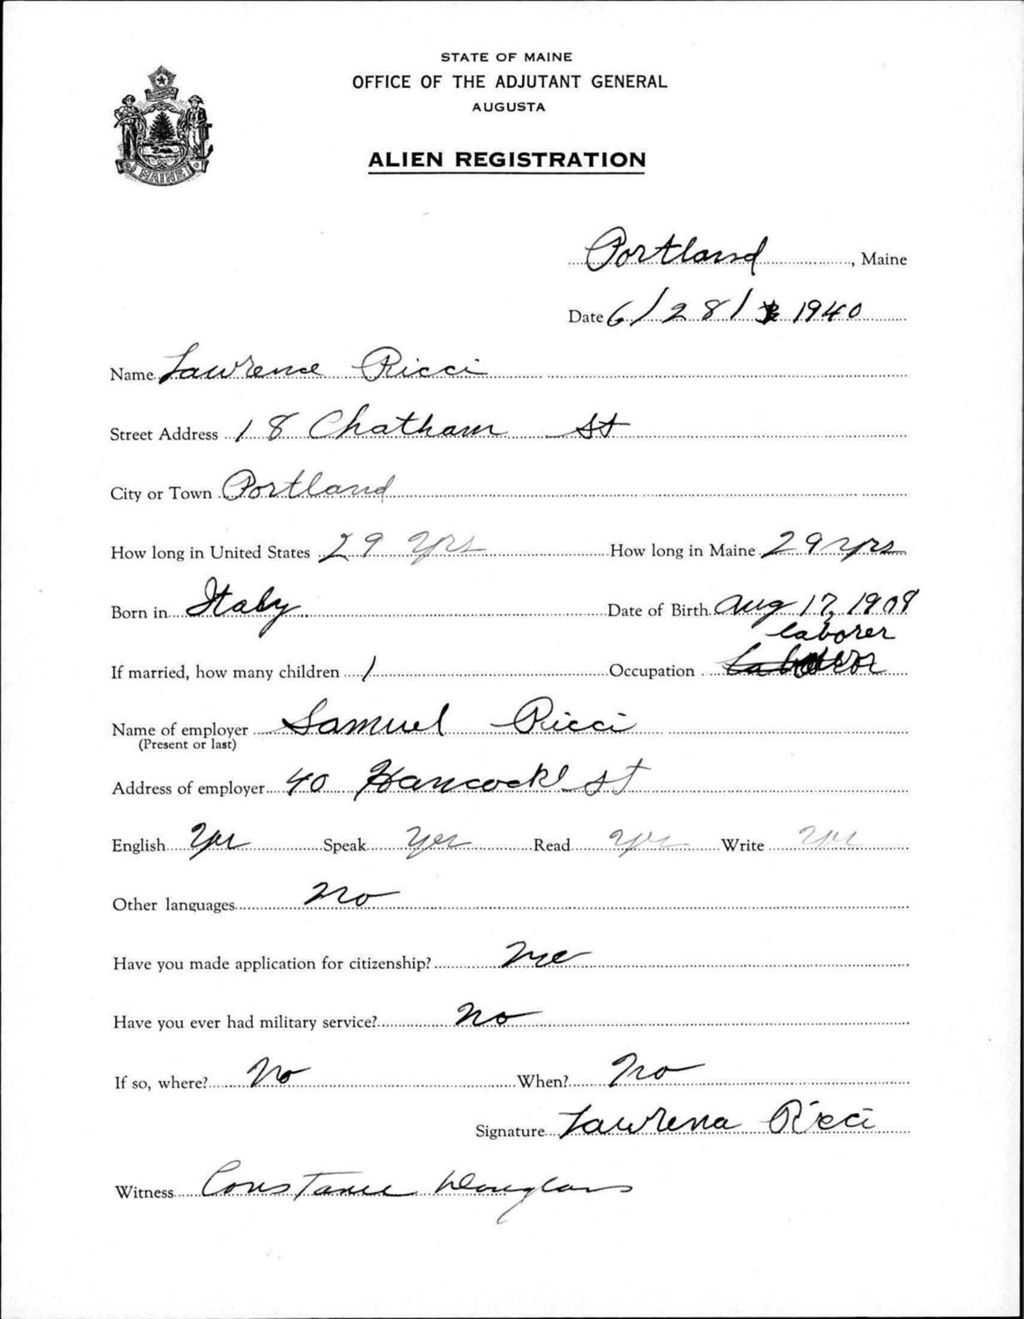 STATE OF MAINE
OFFICE OF THE ADJUTANT GENERAL
AUGUSTA
ALIEN REGISTRATION
MAINE
Portland, Maine
Date 6/28/ 1940
Name Lawrence Ricci
Street Address 18 Chatham St
City or Town Portland
How long in United States 29 yrs How long in Maine 29 yrs
Born in Italy Date of Birth Aug 17, 1909
laborer
If married, how many children 1 Occupation
Name of employer Samuel Ricci
(Present or last)
Address of employer 40 Hancock St
English Yes Speak Yes Read Yes Write Yes
Other languages No
Have you made application for citizenship?
Have you ever had military service? No
If so, where? No When? No
Signature Ricci
Witness Constance Douglass